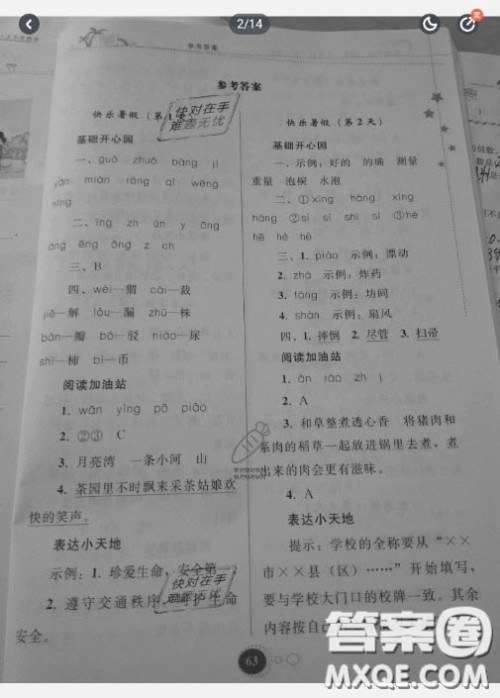 2/14
参考答案
参考答案
快乐暑假（第1天）
基础开心园
一、guō zhuō bāng jǐ
miàn ráng qǐ wēng
二、īng zh ǔn y āng
āng ēng ōng z ch
三、B
四、wèi—猬 cái—裁
jiě—解 lòu—漏 zhū—株
bàn—瓣 bó—驳 niào—尿
shì—柿 bì—币
阅读加油站
1. wān yíng pō piāo
2. ②③ C
3. 月亮湾 一条小河 山
4. 茶园里不时飘来采茶姑娘欢
快的笑声。
表达小天地
示例：1. 珍爱生命，安全第一。
2. 遵守交通秩序，呵护生命
安全。
快对在手
难题无忧
快对在手
难题无忧
快乐暑假（第2天）
基础开心园
一、示例：好的 的确 测量
重量 泡桐 水泡
二、①xíng háng xíng
háng ②sì sì shì sì ③hé
三、1. piāo 示例：漂动
2. zhà 示例：炸药
3. fāng 示例：坊间
4. shàn 示例：扇风
四、1. 摔倒 2. 尽管 3. 扫帚
阅读加油站
2. A
3. 和草整煮透心香 将猪肉和
素肉的稻草一起放进锅里去煮，煮
出来的肉会更有滋味。
4. A
表达小天地
提示：学校的全称要从“××
市××县（区）……”开始填写，
要与学校大门口的校牌一致。其余
内容按自己
63
答案圈
MXQE.COM